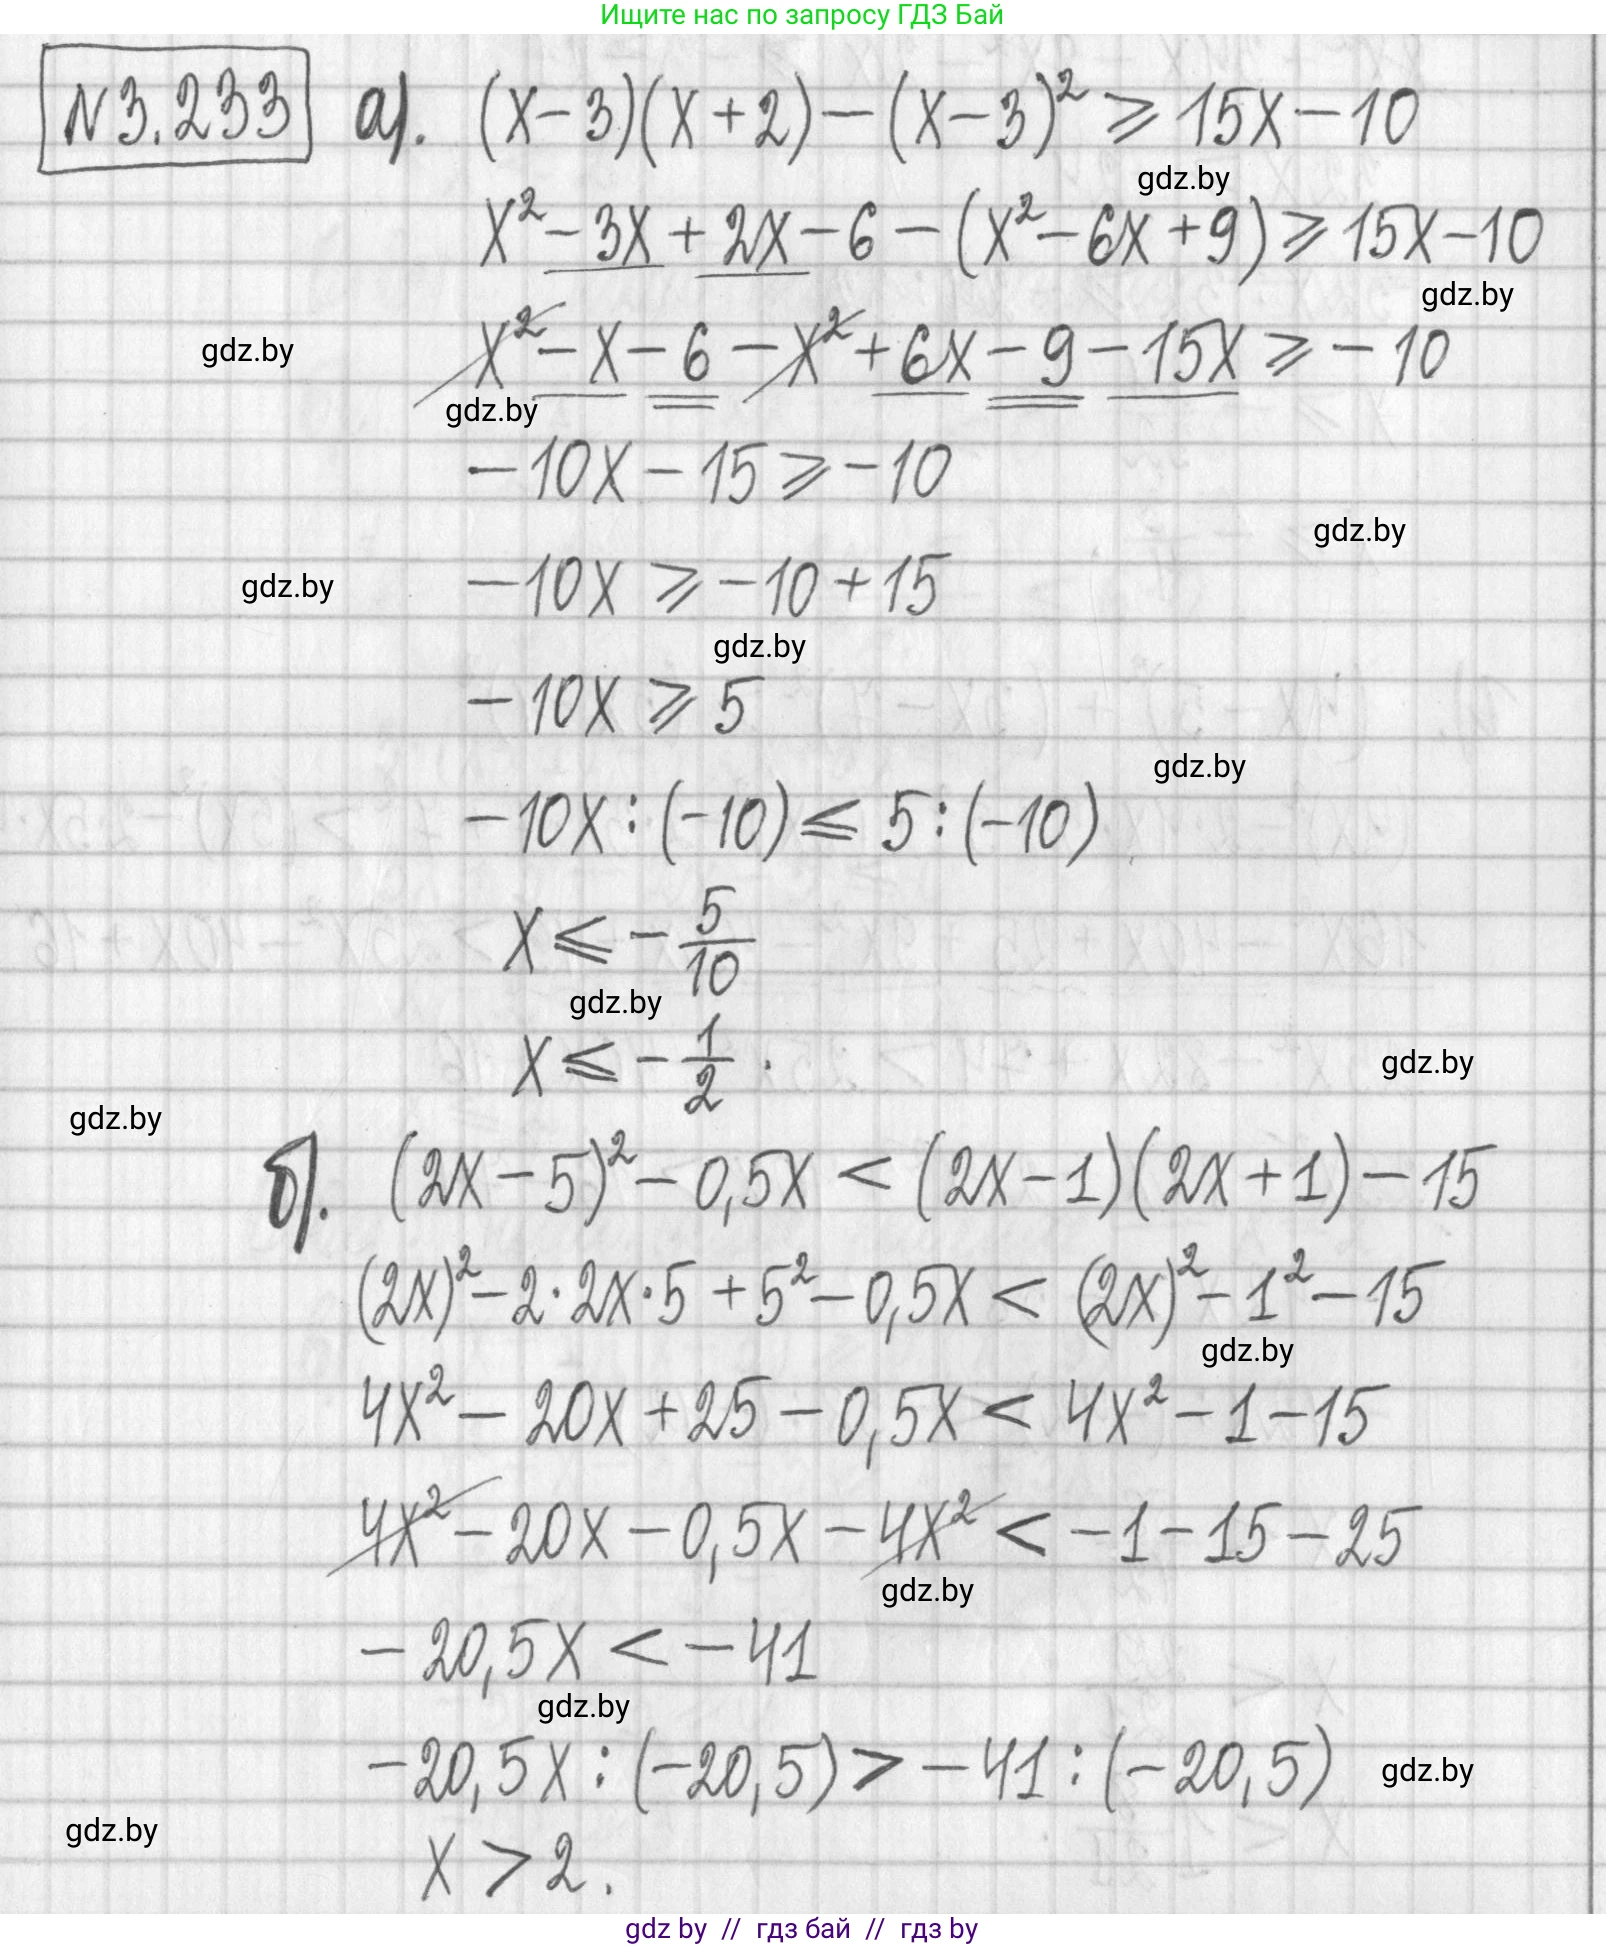 Ищите нас по запросу ГДЗ Бай
N3.233 а). (x-3)(x+2)-(x-3)² ⩾ 15x-10
gdz.by
x²-3x+2x-6-(x²-6x+9) ⩾ 15x-10
gdz.by
x²-x-6-x²+6x-9-15x ⩾ -10
gdz.by
gdz.by
-10x-15 ⩾ -10
gdz.by
-10x ⩾ -10+15
gdz.by
gdz.by
-10x ⩾ 5
gdz.by
-10x:(-10) ⩽ 5:(-10)
x ⩽ -5/10
gdz.by
x ⩽ -1/2.
gdz.by
gdz.by
б). (2x-5)²-0,5x < (2x-1)(2x+1)-15
(2x)²-2·2x·5+5²-0,5x < (2x)²-1²-15
gdz.by
4x²-20x+25-0,5x < 4x²-1-15
4x²-20x-0,5x-4x² < -1-15-25
gdz.by
-20,5x < -41
gdz.by
-20,5x:(-20,5) > -41:(-20,5)
gdz.by
gdz.by
x > 2.
gdz by // гдз бай // гдз by